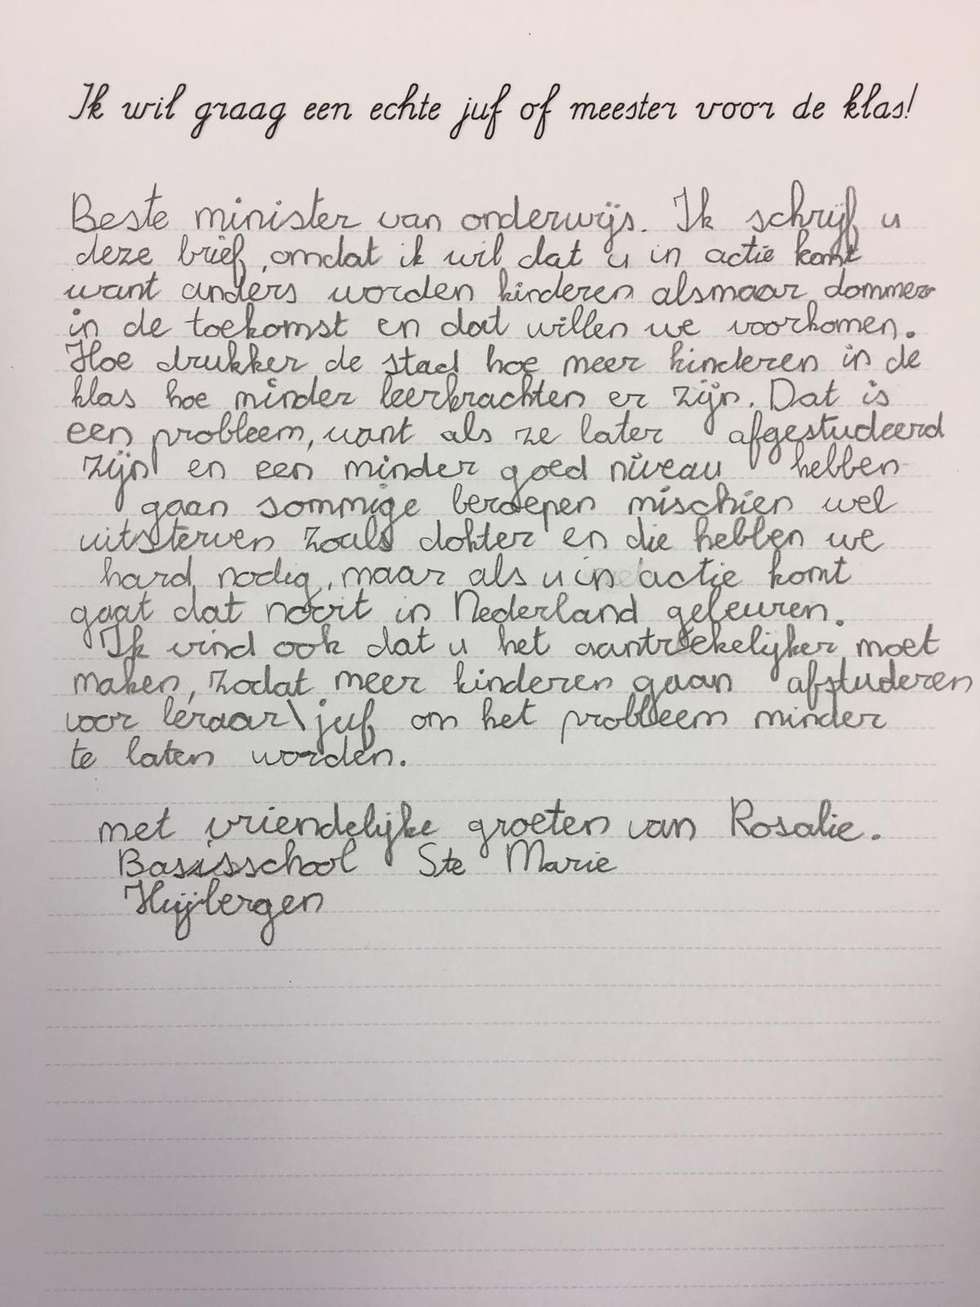 Ik wil graag een echte juf of meester voor de klas!
Beste minister van onderwijs. Ik schrijf u
deze brief, omdat ik wil dat u in actie komt
want anders worden kinderen alsmaar dommer
in de toekomst en dat willen we voorkomen.
Hoe drukker de stad hoe meer kinderen in de
klas hoe minder leerkrachten er zijn. Dat is
een probleem, want als ze later afgestudeerd
zijn en een minder goed niveau hebben
gaan sommige beroepen mischien wel
uitsterven zoals dokter en die hebben we
hard nodig, maar als u in actie komt
gaat dat nooit in Nederland gebeuren.
Ik vind ook dat u het aantrekelijker moet
maken, zodat meer kinderen gaan afstuderen
voor leraar\juf om het probleem minder
te laten worden.
met vriendelijke groeten van Rosalie.
Basisschool Ste Marie
Huijbergen